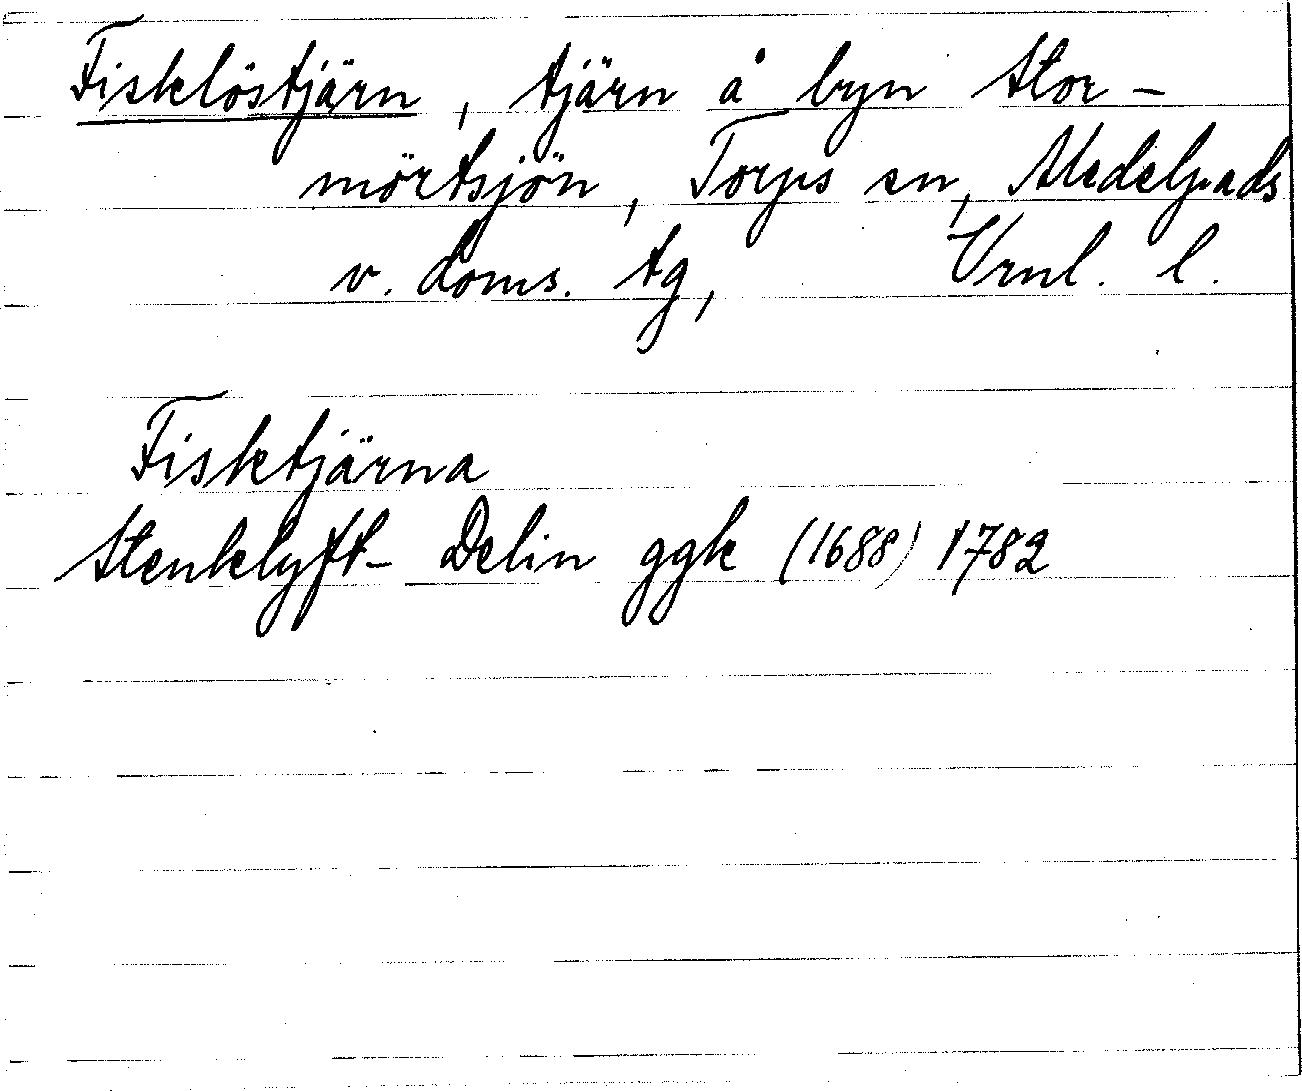 Fisklöstjärn, tjärn å byn Stor-
mörtsjön, Torps sn, Medelpads
v. doms. tg, Vrnl. l.
Fisktjärna
Stenklyft- Delin ggk (1688) 1782